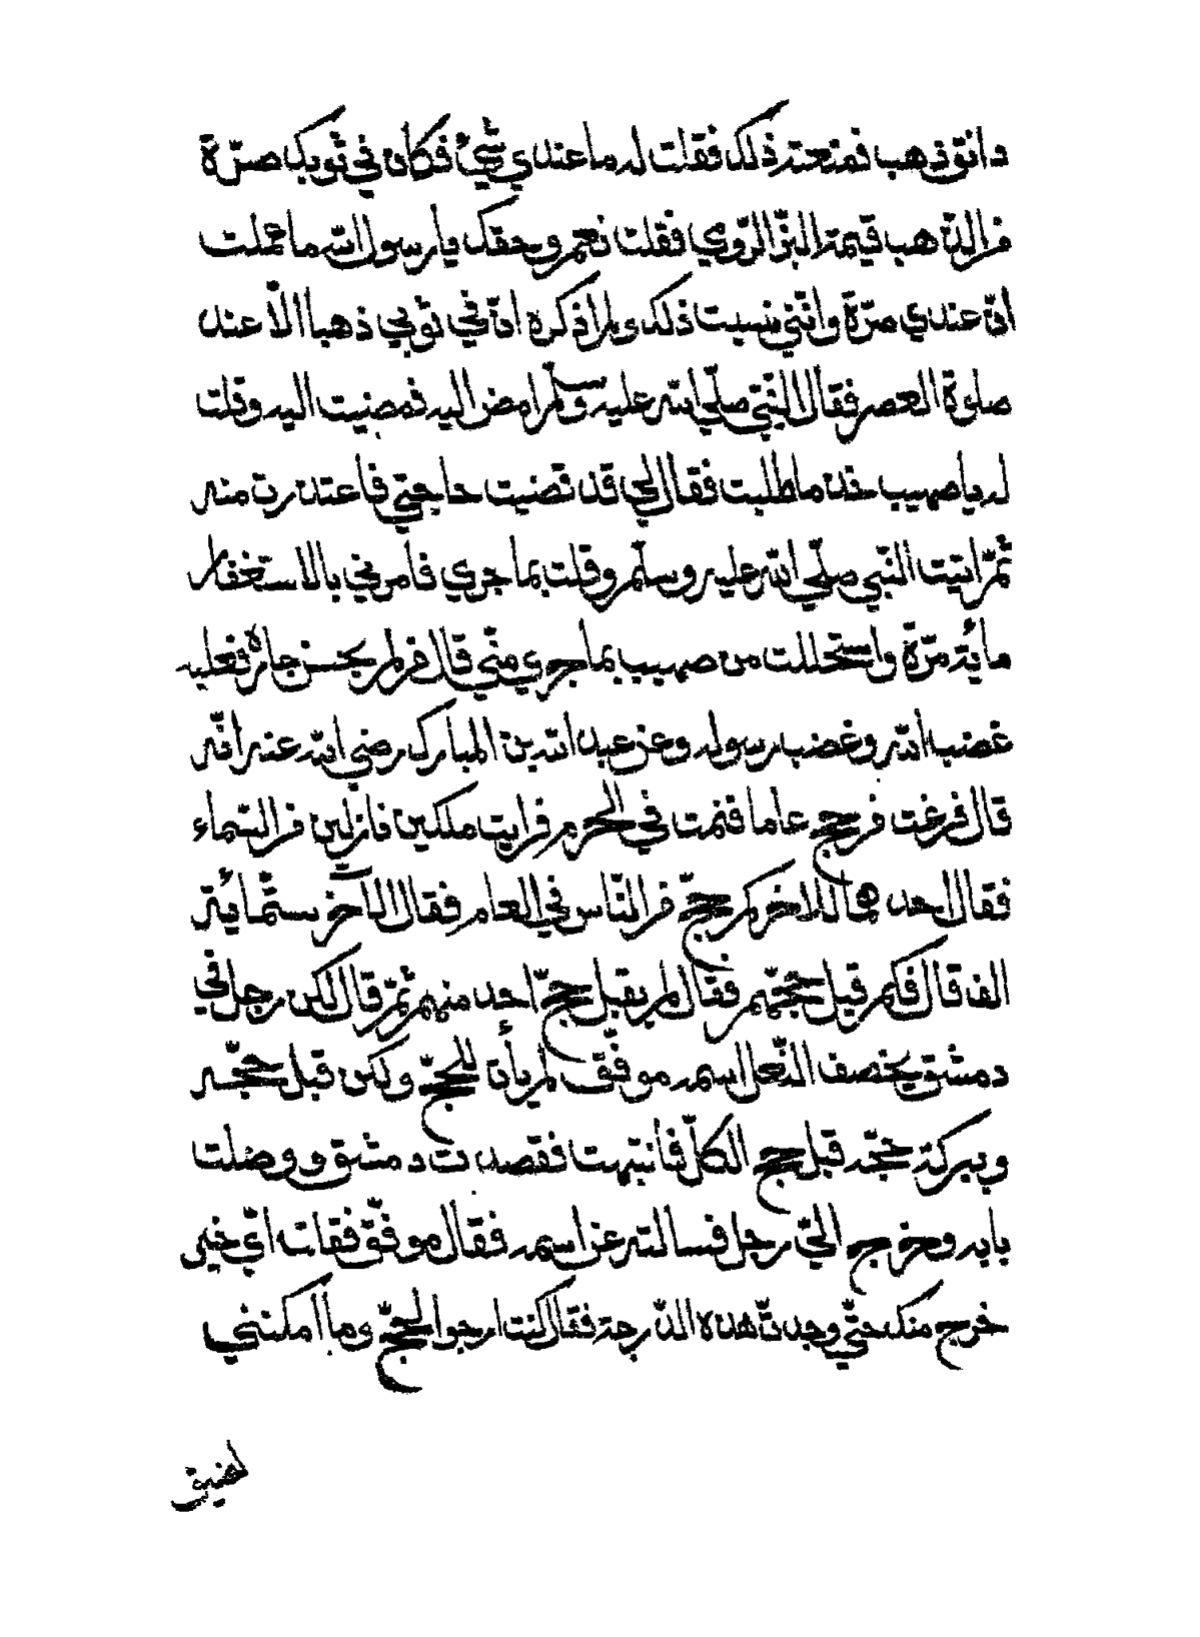 دانق ذهب فمنعته ذلك فقلت له ما عندي شيئ فكان في ثوبك صرّة
من الذّهب قيمة البزّ الرّومي فقلت نعم وحقك يا رسول الله ما عملت
انّ عندي صرّة وانّني نسيت ذلك ولم اذكره انّ في ثوبي ذهبا الّا عند
صلوة العصر فقال النّبيّ صلّي الله عليه وسلّم امض اليه فمضيت اليه وقلت
له يا صهيب خذ ما طلبت فقال لي قد قضيت حاجتي فاعتذرت منه
ثمّ اتيت النّبي صلّي الله عليه وسلّم وقلت بما جري فأمرني بالاستغفار
مأية مرّة واستحللت من صهيب بما جري منّي قال فمن لم يحسن جاره فعليه
غضب الله وغضب رسوله وعن عبد الله بن المبارك رضي الله عنه انّه
قال فرغت من حجج عاما فنمت في الحرم فرايت ملكين نازلين من السّماء
فقال احدهما للاخر كم حجّ من النّاس في العام فقال الآخر ستّمائة
الف قال فكم قبل حجّهم فقال لم يقبل حجّ احد منهم ثمّ قال لكن رجل في
دمشق يخصف النّعل اسمه موفّق لم يأت للحجّ ولكن قبل حجّه
وببركة حجّه قبل حج الكلّ فأنتبهت فقصدت دمشق ووصلت
بابه وخرج اليّ رجل فسالته عن اسمه فقال موفّق فقلت له ايّ خير
خرج منك حتّي وجدتّ هذه الدّرجة فقال كنت ارجو الحجّ وما امكنني
لضيق